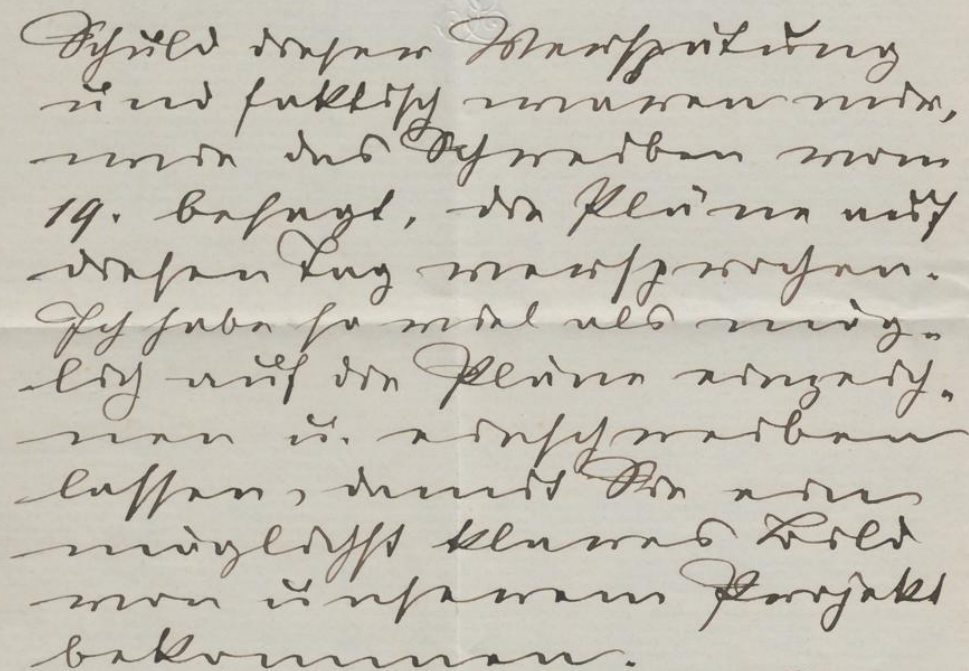 Schuld dieser Verspätung
und faktisch waren wir,
wie das Schreiben vom
19. besagt, die Pläne auf
diesen Tag versprochen.
Ich habe so viel als mög-
lich auf die Pläne einzeich-
nen u. einschreiben
lassen, damit Sie ein
möglichst klares Bild
von unserem Projekt
bekommen.